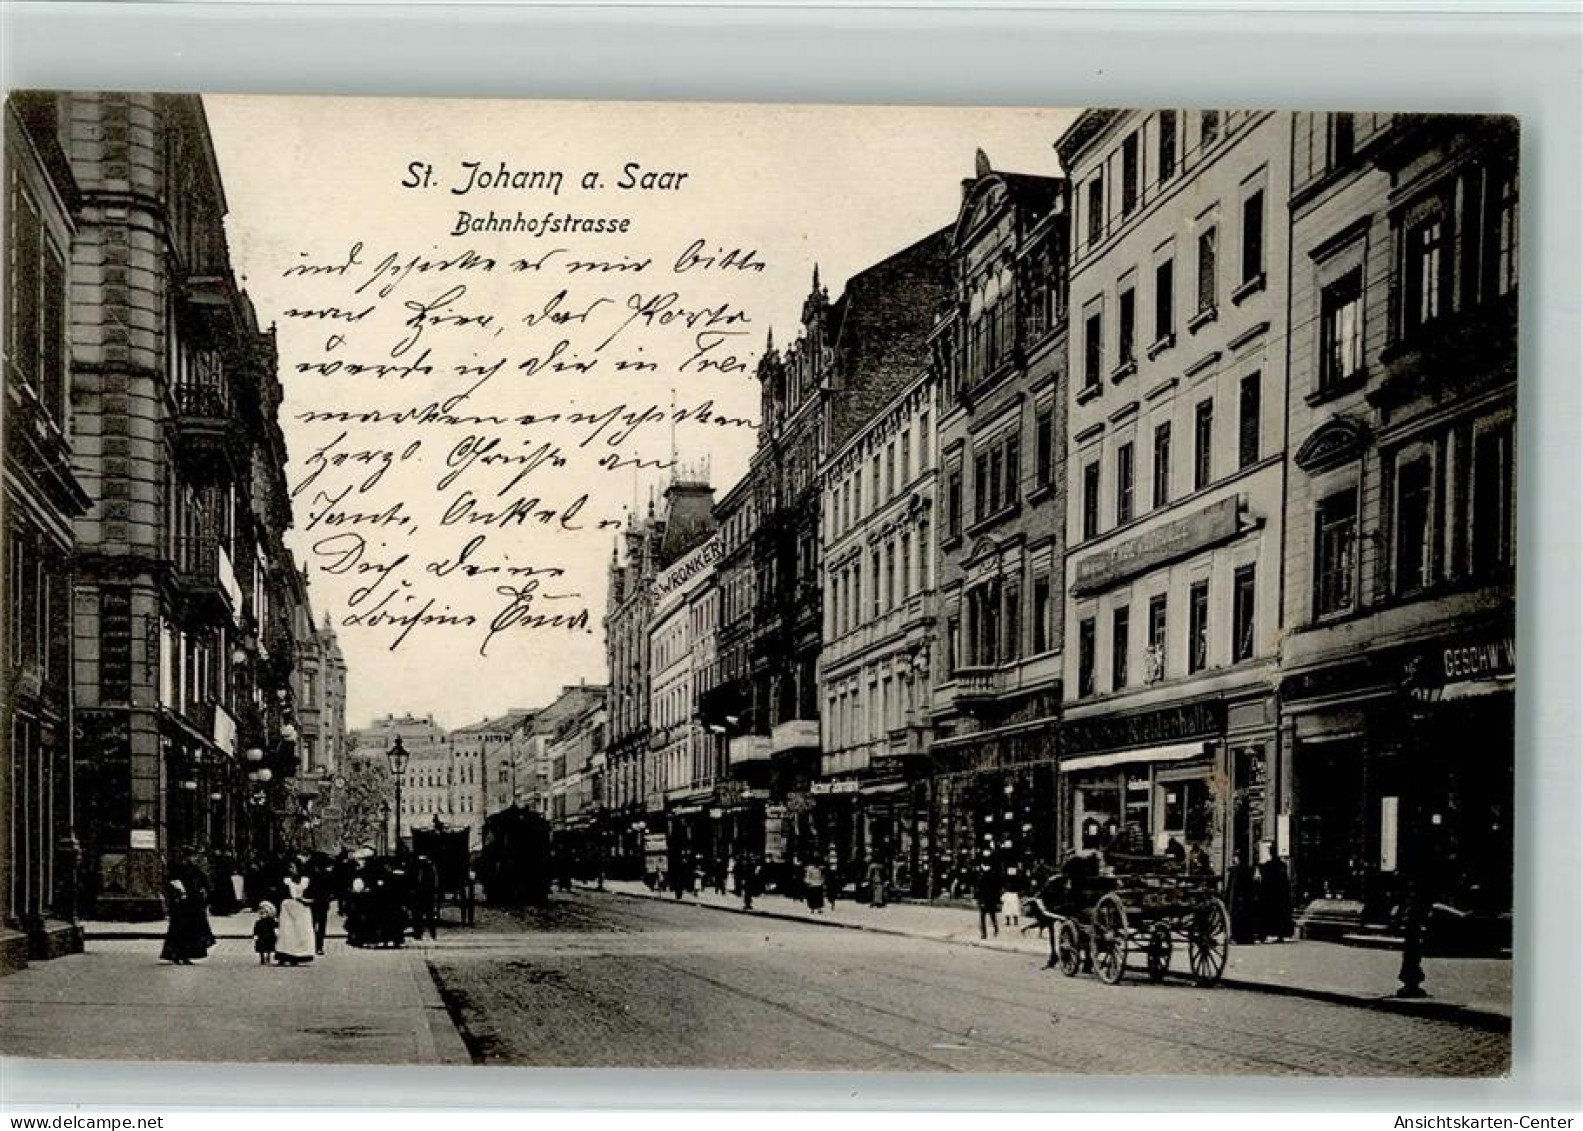 St. Johann a. Saar
Bahnhofstrasse
und schicke es mir bitte
nach hier, das Porto
werde ich Dir in Frei
marken einschicken
Herzl. Grüße an
Tante, Onkel u
Dich Deine
Cousine Emma.
S. WRONKER
GESCHW. W
Ansichtskarten-Center